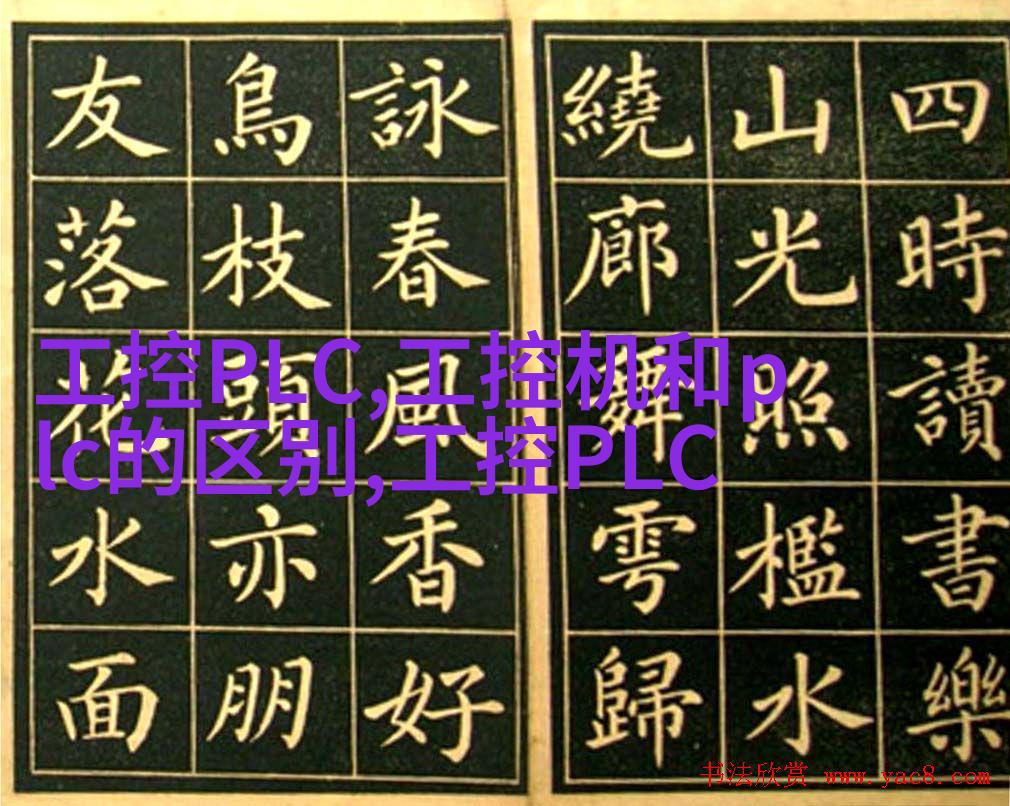 四時讀書樂
山光照檻水
繞廊舞雩歸
詠春風香好
鳥枝頭亦朋
友落花水面
工控PLC,工控机和p
lc的区别,工控PLC
书法欣赏 www.yac8.com